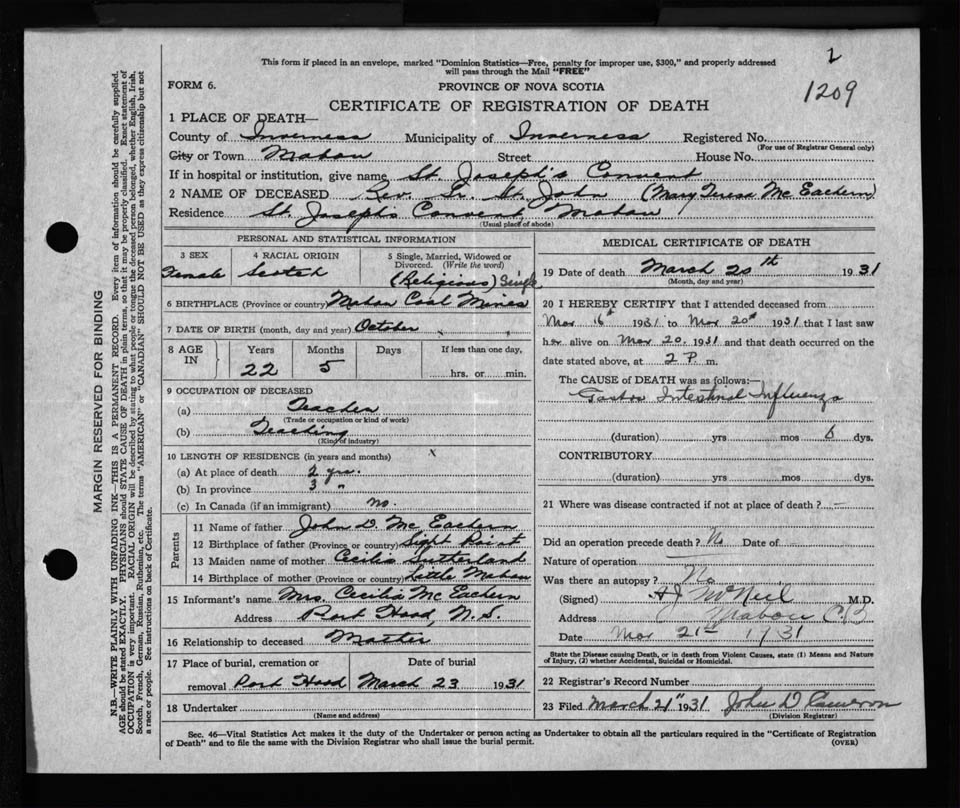 2
1209
This form if placed in an envelope, marked "Dominion Statistics—Free, penalty for improper use, $300," and properly addressed
will pass through the Mail "FREE"
FORM 6.
PROVINCE OF NOVA SCOTIA
CERTIFICATE OF REGISTRATION OF DEATH
1 PLACE OF DEATH—
County of Inverness Municipality of Inverness Registered No.
(For use of Registrar General only)
City or Town Mabou Street House No.
If in hospital or institution, give name St. Joseph's Convent
2 NAME OF DECEASED Rev. Sr. St. John (Mary Teresa McEachern)
Residence St. Joseph's Convent, Mabou
(Usual place of abode)
PERSONAL AND STATISTICAL INFORMATION
3 SEX
Female
4 RACIAL ORIGIN
Scotch
5 Single, Married, Widowed or
Divorced. (Write the word)
(Religious) Single
6 BIRTHPLACE (Province or country) Mabou Coal Mines
7 DATE OF BIRTH (month, day and year) October
8 AGE
IN
Years Months Days If less than one day,
22 5 hrs. or min.
9 OCCUPATION OF DECEASED
(a) Teacher
(Trade or occupation or kind of work)
(b) Teaching
(Kind of industry)
10 LENGTH OF RESIDENCE (in years and months) x
(a) At place of death 2 yrs.
(b) In province 3 "
(c) In Canada (if an immigrant) no.
Parents
11 Name of father John D. McEachern
12 Birthplace of father (Province or country) Sight Point
13 Maiden name of mother Cecilia Sutherland
14 Birthplace of mother (Province or country) Little Mabou
15 Informant's name Mrs. Cecilia McEachern
Address Port Hood, N.S.
16 Relationship to deceased Mother
17 Place of burial, cremation or Date of burial
removal Port Hood March 23 1931
18 Undertaker
(Name and address)
MEDICAL CERTIFICATE OF DEATH
19 Date of death March 20th 1931
(Month, day and year)
20 I HEREBY CERTIFY that I attended deceased from
Mar 16th 1931 to Mar 20th 1931 that I last saw
her alive on Mar 20. 1931 and that death occurred on the
date stated above, at 2 P. m.
The CAUSE OF DEATH was as follows:—
Gastro Intestinal Influenza
(duration) yrs mos 6 dys.
CONTRIBUTORY
(duration) yrs mos dys.
21 Where was disease contracted if not at place of death?
Did an operation precede death? No Date of
Nature of operation
Was there an autopsy? No
(Signed) McNeil M.D.
Address Mabou C.B
Date Mar 21st 1931
State the Disease causing Death, or in death from Violent Causes, state (1) Means and Nature
of Injury, (2) whether Accidental, Suicidal or Homicidal.
22 Registrar's Record Number
23 Filed March 21" 1931 John D Cameron
(Division Registrar)
Sec. 46—Vital Statistics Act makes it the duty of the Undertaker or person acting as Undertaker to obtain all the particulars required in the "Certificate of Registration
of Death" and to file the same with the Division Registrar who shall issue the burial permit.
(OVER)
MARGIN RESERVED FOR BINDING
N.B.—WRITE PLAINLY WITH UNFADING INK—THIS IS A PERMANENT RECORD. Every item of information should be carefully supplied.
AGE should be stated EXACTLY. PHYSICIANS should STATE CAUSE OF DEATH in plain terms, so that it may be properly classified. Exact statement of
OCCUPATION is very important. RACIAL ORIGIN will be described by stating to what people or tongue the deceased person belonged, whether English, Irish,
Scotch, French, German, Russian, Ruthenian, etc. The terms "AMERICAN" or "CANADIAN" SHOULD NOT BE USED as they express citizenship but not
a race or people. See instructions on back of Certificate.